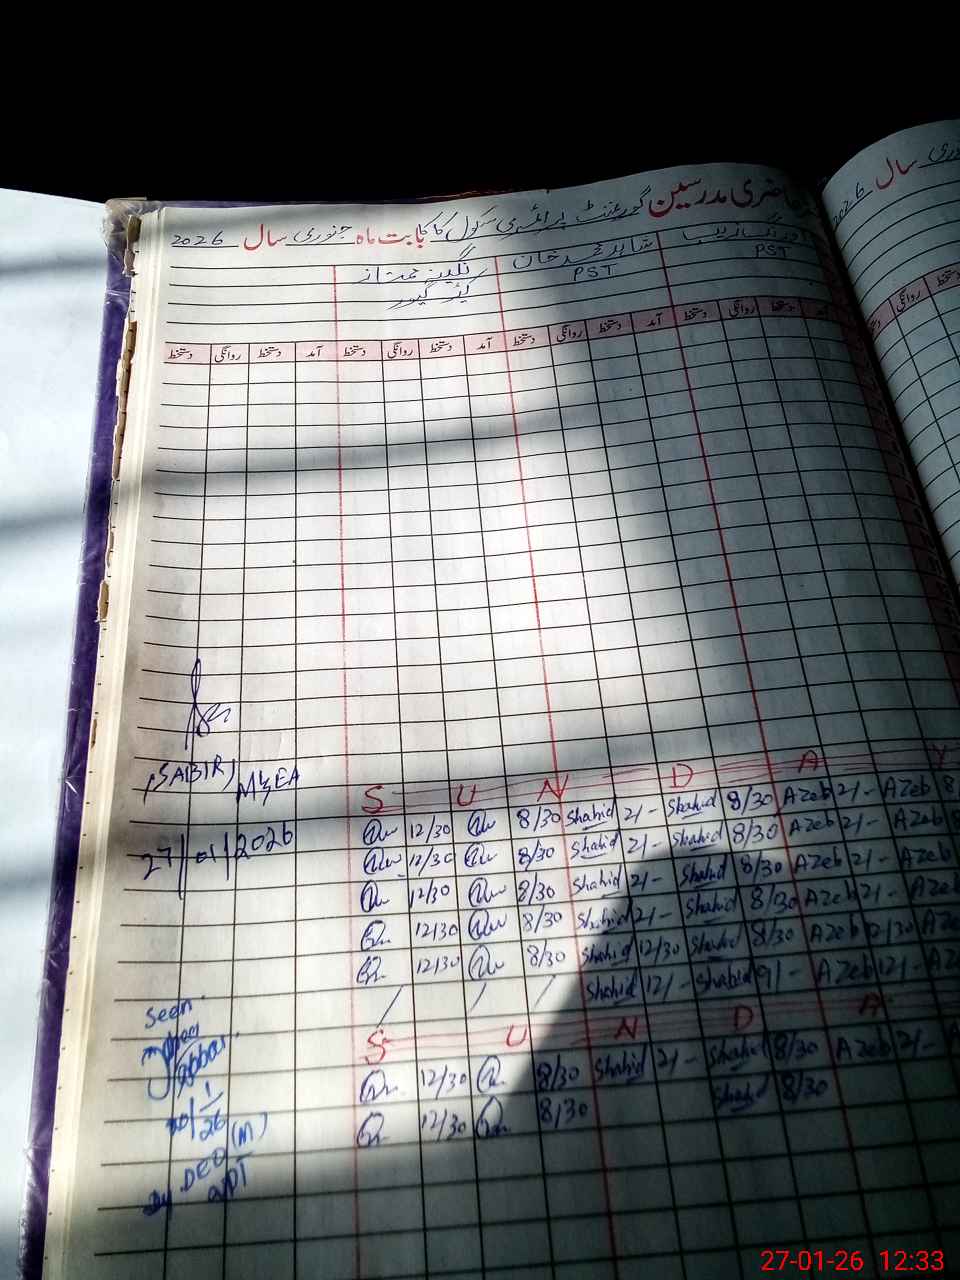 حاضری مدرسین گورنمنٹ پرائمری سکول کاکا بابت ماہ جنوری سال 2026
سال 2026
اورنگزیب شاہد محمد خان نگینہ ممتاز
PST PST کیئر گیور
آمد دستخط روانگی دستخط آمد دستخط روانگی دستخط آمد دستخط روانگی دستخط آمد دستخط روانگی دستخط
روانگی
(SABIR)
27/01/2026
S U N D A Y
12/30 8/30 Shahid 2/- Shahid 8/30 AZeb 2/- AZeb 8
12/30 8/30 Shahid 2/- Shahid 8/30 AZeb 2/- AZeb
12/30 8/30 Shahid 2/- Shahid 8/30 AZeb 2/- AZeb
12/30 8/30 Shahid 2/- Shahid 8/30 AZeb 2/- AZeb
12/30 8/30 Shahid 12/30 Shahid 8/30 AZeb 12/30 AZeb
/ / / Shahid 12/- Shahid 9/- AZeb 12/- AZe
S U N D A
12/30 8/30 Shahid 2/- Shahid 8/30 AZeb 2/-
12/30 8/30 Shahid 8/30
Seen
DEO (M)
27-01-26 12:33